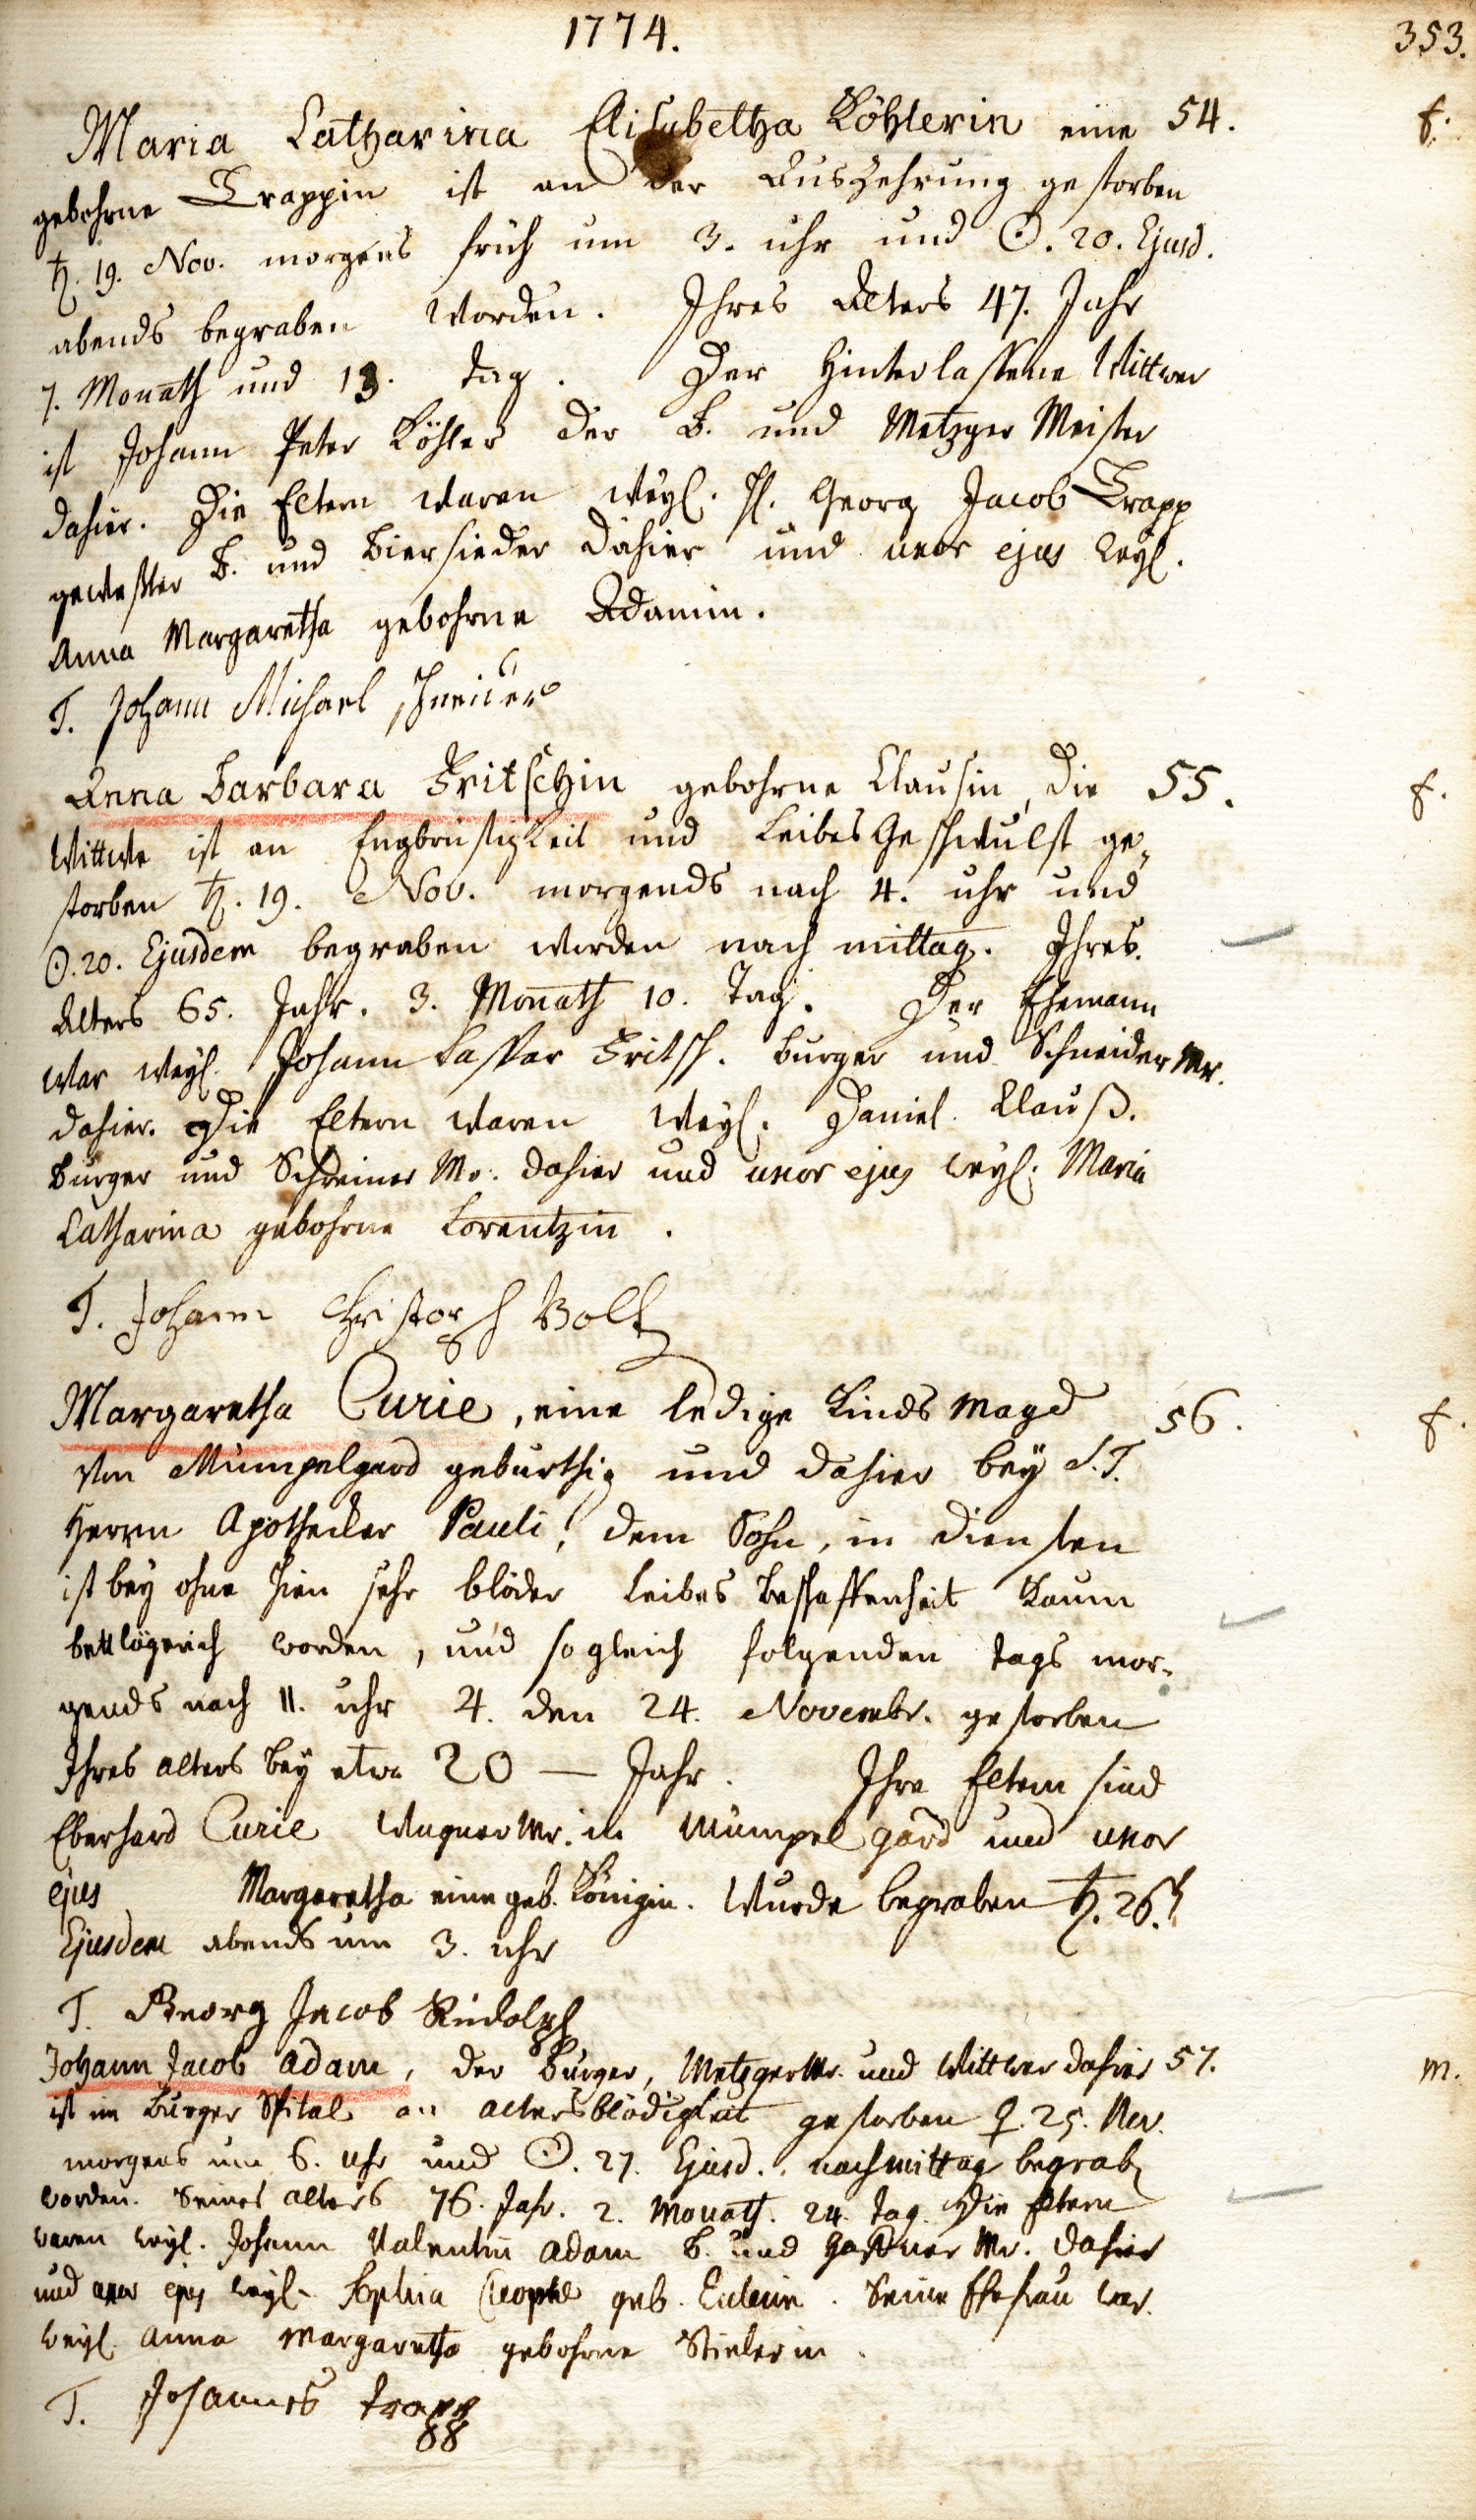 1774.
353.
Maria Catharina Elisabetha Köhlerin eine 54. f.
gebohrne Trappin ist an der Auszehrung gestorben
♄. 19. Nov. morgens früh um 3. uhr und ☉. 20. Ejusd.
abends begraben worden. Ihres Alters 47. Jahr
7. Monath und 13. tag. Der hinterlassene Wittwer
ist Johann Peter Köhler der B. und Metzger Meister
dahier. Die Eltern waren weyl. H. Georg Jacob Trapp
geweßter B. und Biersieder dahier und uxor ejus weyl.
Anna Margaretha gebohrne Adamin.
T. Johann Michael
Anna Barbara Fritschin gebohrne Clausin, die 55. f.
Wittwe ist an Engbrüstigkeit und Leibes Geschwulst ge„
storben ♄. 19. Nov. morgends nach 4. uhr und
☉. 20. Ejusdem begraben worden nach mittag. Ihres
Alters 65. Jahr. 3. Monath 10. Tag. Der Ehemann
war weyl. Johann Caspar Fritsch. burger und Schneider Mr.
dahier. Die Eltern waren weyl. Daniel Clauß.
burger und Schreiner Mr. dahier und uxor ejus weyl. Maria
Catharina gebohrne Lorentzin.
T. Johann Christoph Voltz
Margaretha Curie, eine ledige Kinds Magd 56. f.
von Mümpelgard gebürthig und dahier bey S.T.
Herrn Apothecker Pauli, dem Sohn, in diensten
ist bey ohne hien sehr blöder Leibes Beschaffenheit kaum
bettlägerich worden, und sogleich folgenden tags mor-
gends nach 11. uhr ♃. den 24. Novembr. gestorben
Ihres alters bey etwa 20 — Jahr. Ihre Eltern sind
Eberhard Curie Wagner Mr. in Mümpelgard und uxor
ejus Margaretha eine geb. Königin. Wurde begraben ♄. 26.
Ejusdem abends um 3. uhr
T. Georg Jacob Rudolph
Johann Jacob Adam, der Burger, Metzger Mr. und Wittwer dahier 57. m.
ist im Burger Spital an altersblödigkeit gestorben ♀. 25. Nov.
morgens um 6. uhr und ☉. 27. Ejusd. nachmittag begrab
worden. Seines alters 76. Jahr. 2. Monath. 24. tag. Die Eltern
waren weyl. Johann Valentin Adam B. und Haffner Mr. dahier
und uxor ejus weyl. Sophia Cleophe geb. . Seine Ehefrau war
weyl. Anna Margaretha gebohrne Stielerin.
T. Johannes Trapp